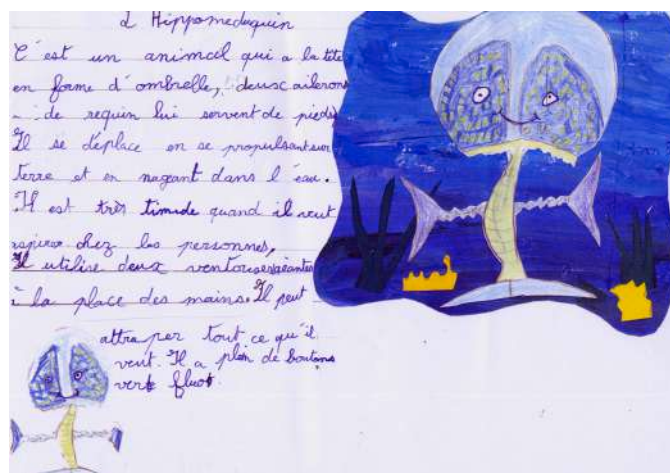 L'Hippomeduquin
C'est un animal qui a la tête
en forme d'ombrelle, deux ailerons
de requin lui servent de pieds
Il se déplace en se propulsant sur
terre et en nageant dans l'eau.
Il est très timide quand il veut
chez les personnes,
Il utilise deux ventouses géantes
à la place des mains. Il peut
attraper tout ce qu'il
veut. Il a plein de boutons
vert fluot.